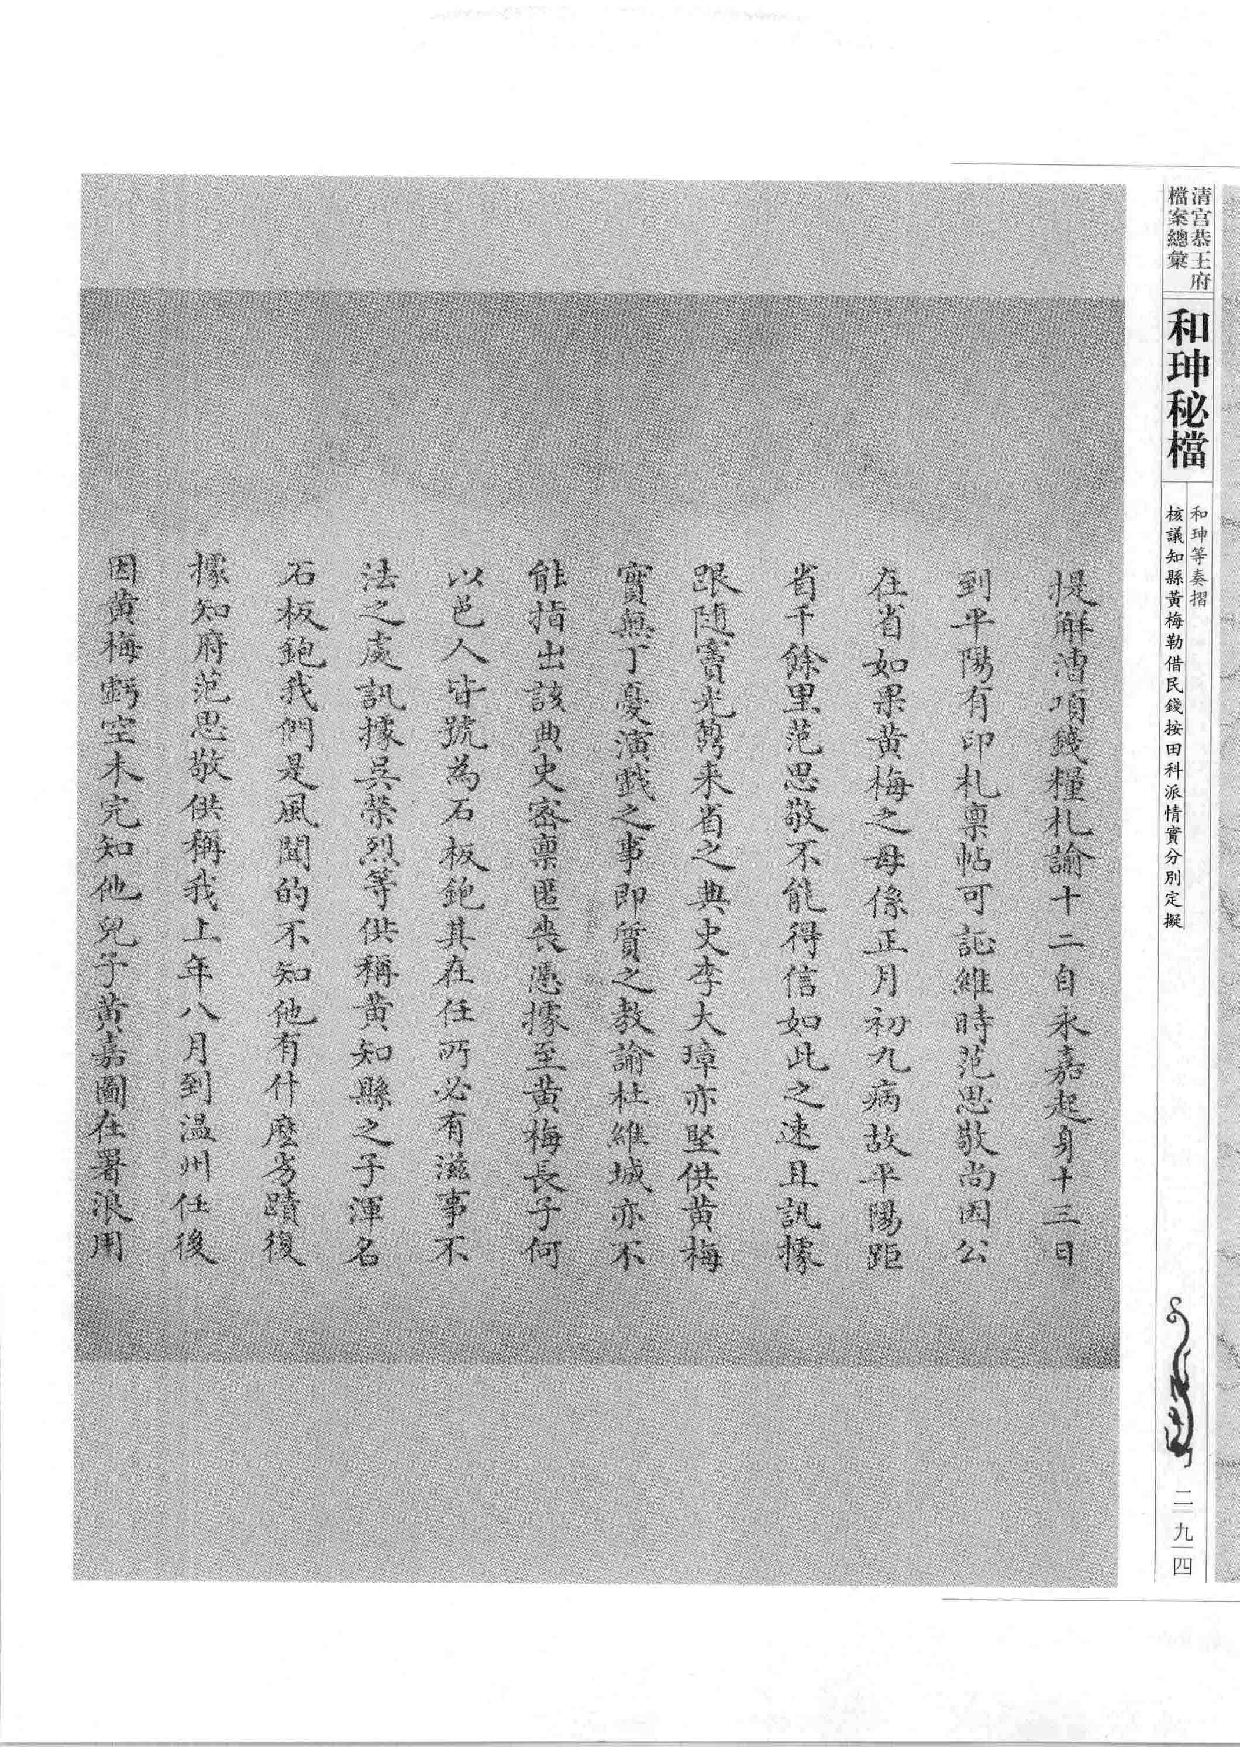 清宮恭王府
檔案總彙
和珅秘檔
和珅等奏摺
核議知縣黃梅勒借民錢按田科派情實分別定擬
二九四
提解漕項錢糧札諭十二自永嘉起身十三日
到平陽有印札稟帖可証維時范思敬尚因公
在省如果黃梅之母係正月初九病故平陽距
省千餘里范思敬不能得信如此之速且訊據
跟隨竇光鼐來省之典史李大璋亦堅供黃梅
實無丁憂演戲之事即質之教諭杜維城亦不
能指出該典史密稟匿喪憑據至黃梅長子何
以邑人皆號為石板鉋其在任所必有滋事不
法之處訊據吳榮烈等供稱黃知縣之子渾名
石板鉋我們是風聞的不知他有什麼劣蹟復
據知府范思敬供稱我上年八月到溫州任後
因黃梅虧空未完知他兒子黃嘉圖在署浪用